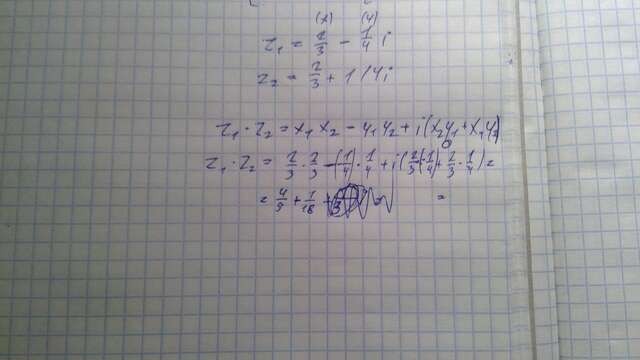 (x) (y)
z₁ = 2/3 - 1/4 i
z₂ = 2/3 + 1/4i
z₁ · z₂ = x₁x₂ - y₁y₂ + i(x₂y₁ + x₁y₂)
z₁ · z₂ = 2/3 · 2/3 - (-1/4) · 1/4 + i(2/3(-1/4) + 2/3 · 1/4) =
= 4/9 + 1/18 + =